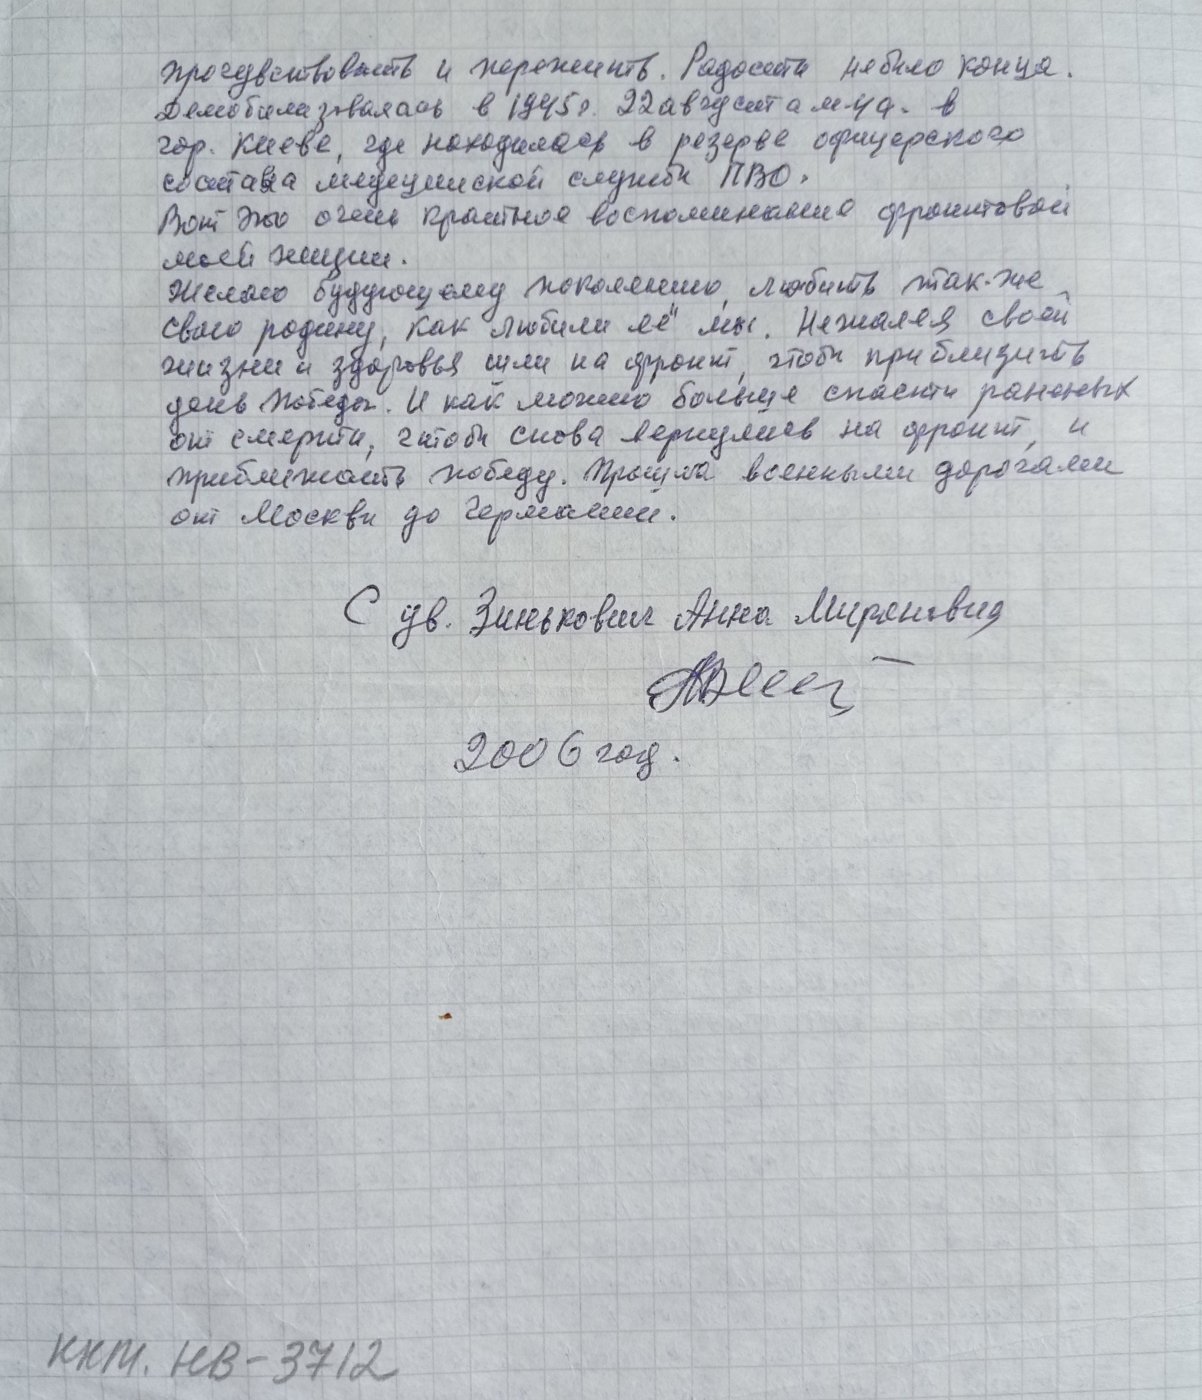 прочувствовать и пережить. Радости небыло конца.
Демобилизовалась в 1945г. 22 августа м-ца. в
гор. Киеве, где находилась в резерве офицерского
состава медецинской службы ПВО.
Вот это очень краткое воспоминание фронтовой
моей жизни.
Желаю будующему поколению, любить так-же
свою родину, как любили её мы. Нежалея своей
жизни и здоровья шли на фронт, чтобы приблизить
день победы. И как можно больше спасти раненых
от смерти, чтобы снова вернулись на фронт, и
приближать победу. Прошла военными дорогами
от Москвы до Германии.
С ув. Зинькович Анна Мироновна
2006 год.
ККМ. НВ-3712